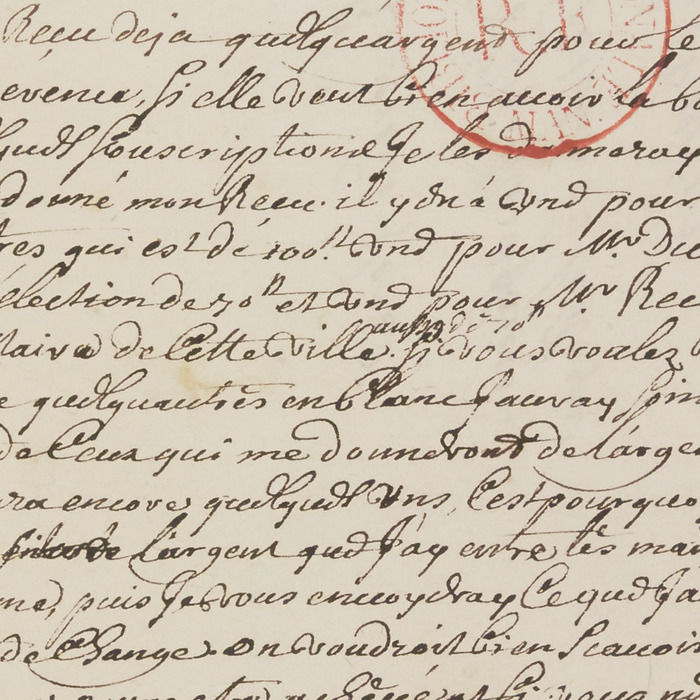 Receu deja quelque argent pour le
si elle veut bien avoir la b
quelq souscriptions Je les
donné mon Receu. il y en á und pour
res qui est dé 100.ᵗᵗ und pour Mr. Du
élection de 70ᵗᵗ et und pour Mr Rec
aussy dé 70ᵗᵗ
laire de Cette ville. si vous voulez
e quelquautrés en blanc J'auray soin
de Ceux qui me donneront de l'arge
ra encore quelqués uns, C'est pourquo
l'argent que J'ay entre lés mai
me, puis Je vous envoydray Ce que J'a
de Change. on voudroit bien Scavoir